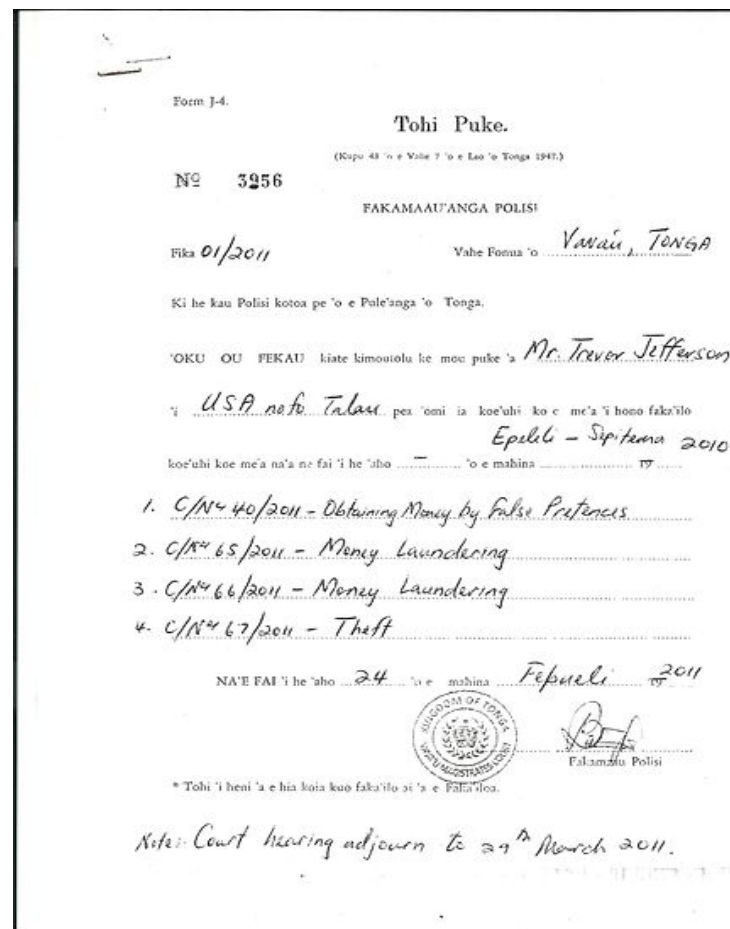 Form J-4.
Tohi Puke.
(Kupu 43 'o e Vahe 7 'o e Lao 'o Tonga 1947.)
Nº 3256
FAKAMAAU'ANGA POLISI
Fika 01/2011 Vahe Fonua 'o Vava'u, TONGA
Ki he kau Polisi kotoa pe 'o e Pule'anga 'o Tonga.
'OKU OU FEKAU kiate kimoutolu ke mou puke 'a Mr. Trevor Jefferson
'i USA nofo Talau pea 'omi ia koe'uhi ko e me'a 'i hono faka'ilo
Epeleli - Sepitema 2010
koe'uhi koe me'a na'a ne fai 'i he 'aho – 'o e mahina 19
1. C/Nº 40/2011 - Obtaining Money by False Pretences
2. C/Nº 65/2011 - Money Laundering
3. C/Nº 66/2011 - Money Laundering
4. C/Nº 67/2011 - Theft
NA'E FAI 'i he 'aho 24 'o e mahina Fepueli 2011
KINGDOM OF TONGA
MAGISTRATES COURT
Fakamaau Polisi
* Tohi 'i heni 'a e hia koia kuo faka'ilo ai 'a e Faka'iloa.
Note: Court hearing adjourn to 29th March 2011.